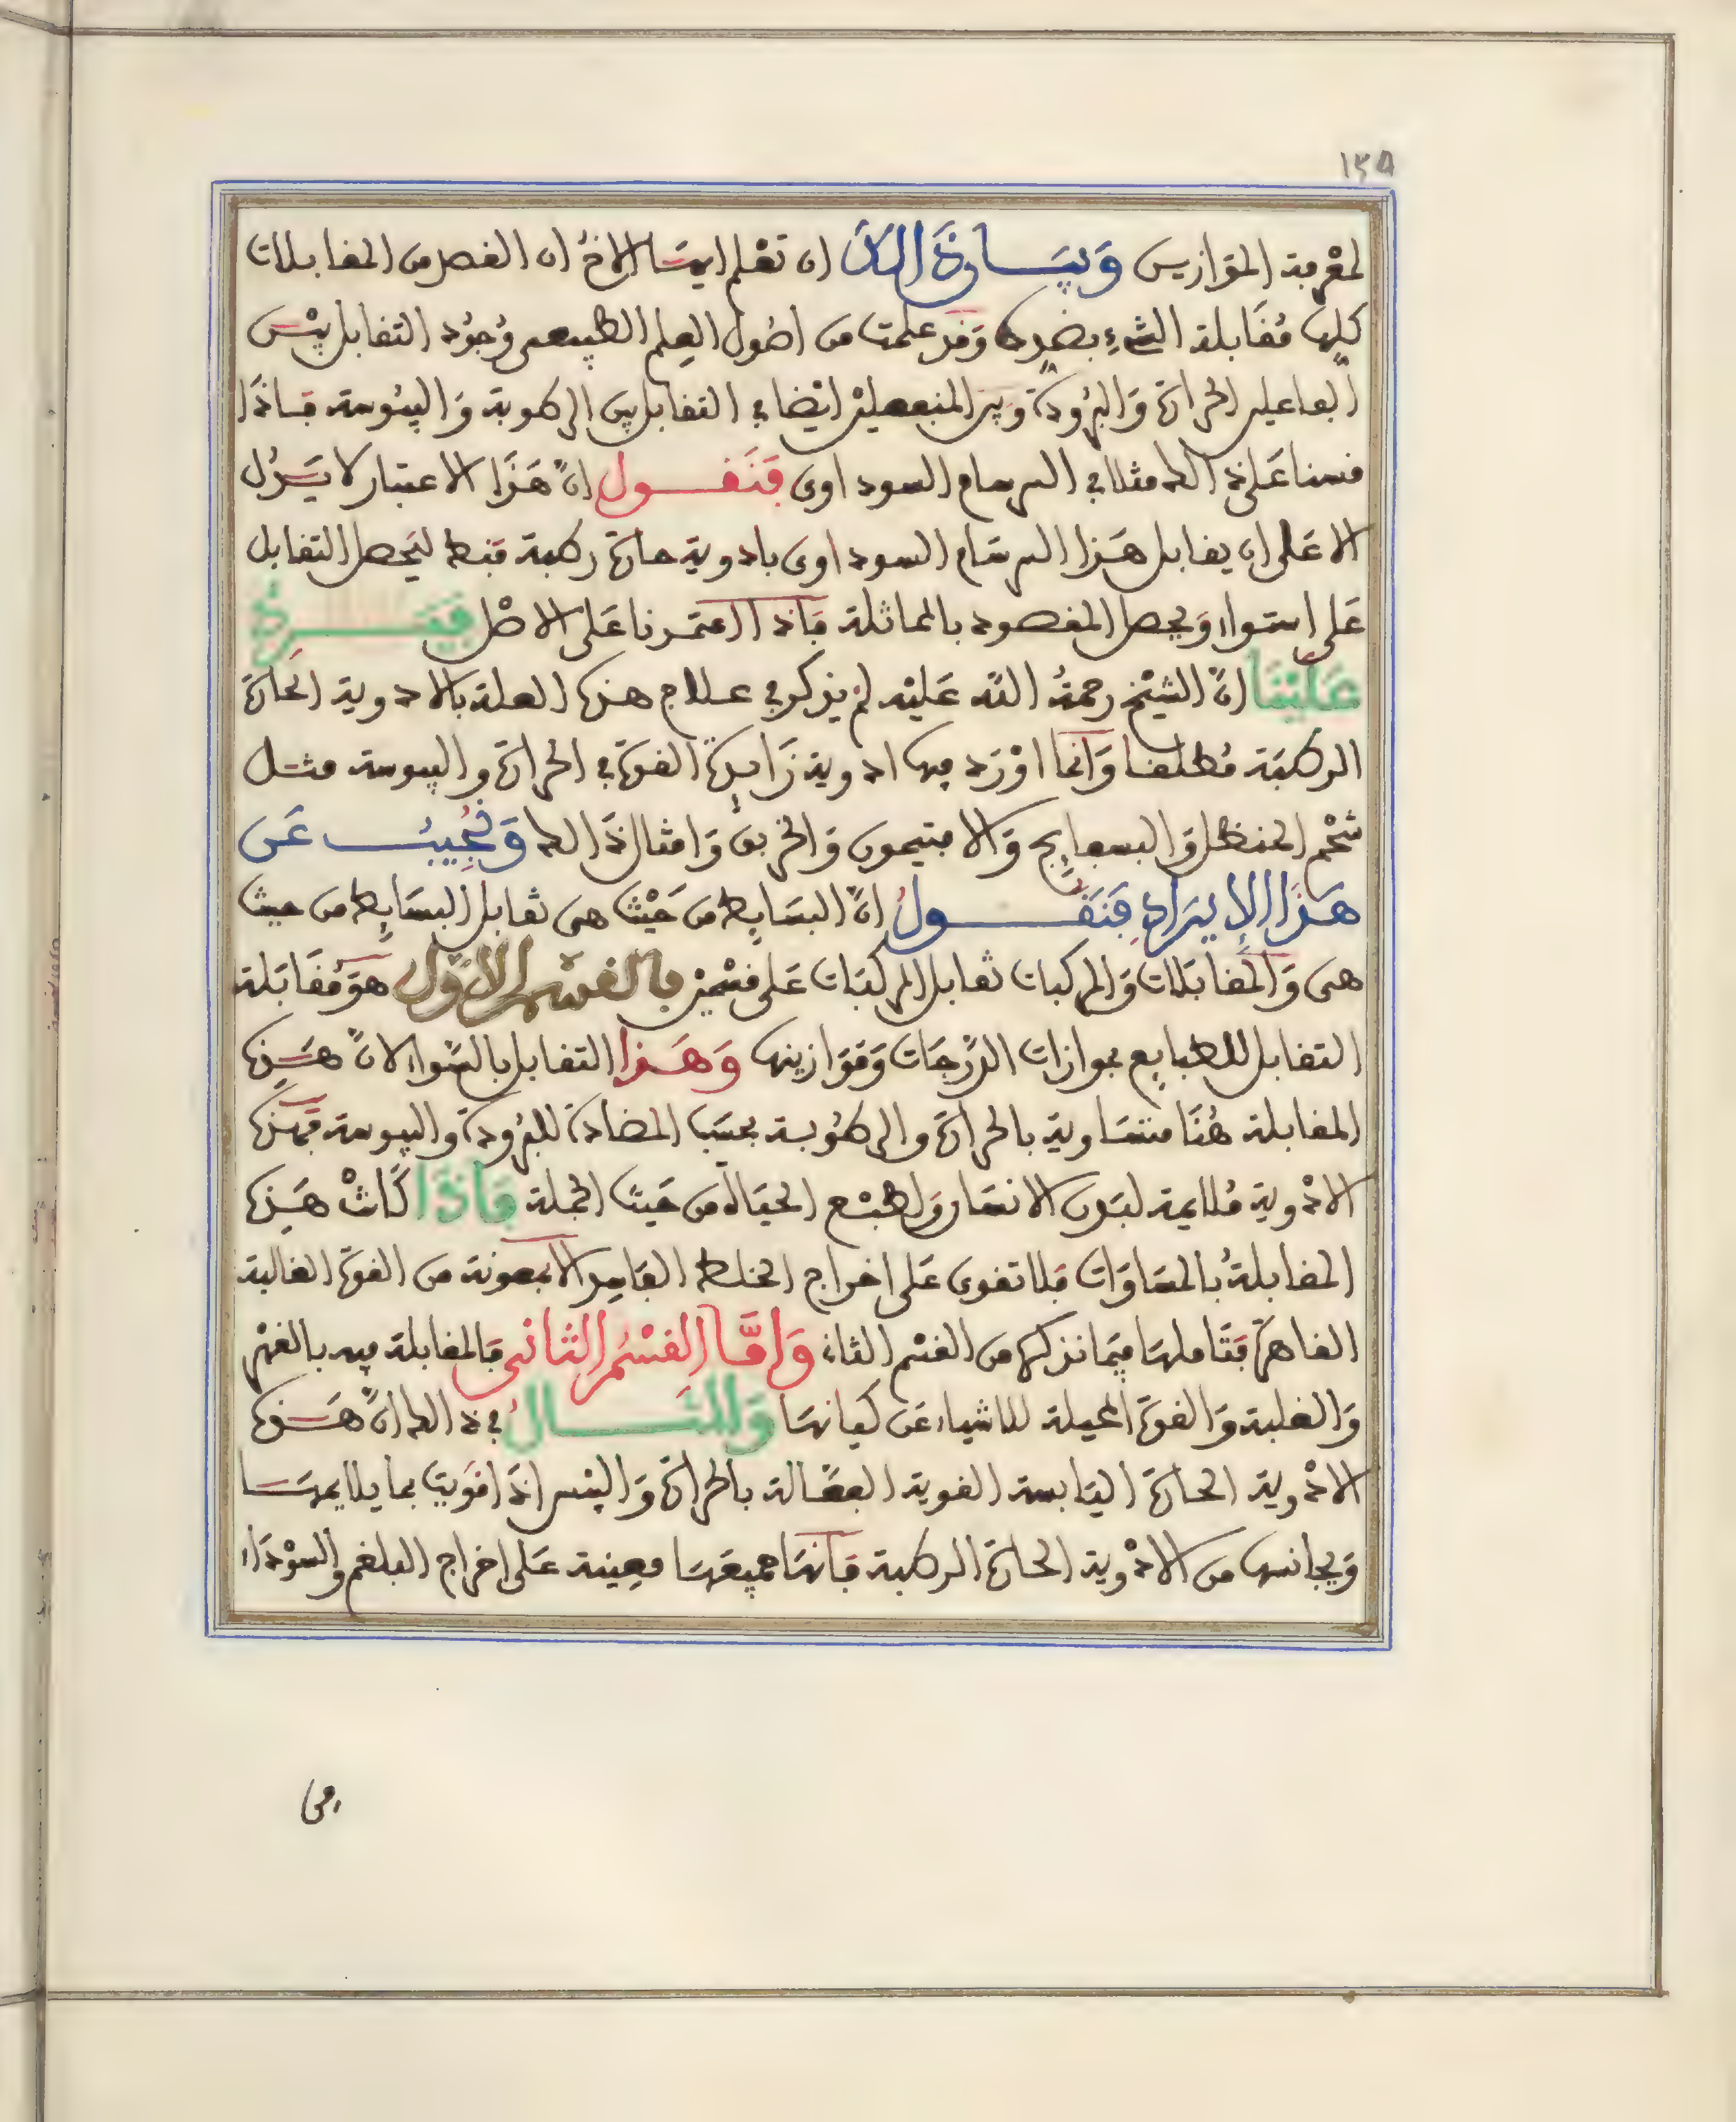 ١٢٥
لمعرفة الموازين وبيان ذالك ان تعلم ايها الاخ ان الغصد من المقابلات
كلها مُقابلة الشيء بضده وَقد علمت من اصُول العِلم الطبيعى وُجُود التقابل بيْن
الفاعلين الحرارة وَالبرُودة وَبين المنفعلين ايْضا في التقابل بين الرطوبة وَاليبُوسة فاذَا
قسنا عَلى ذالك مثلا في البرسام السوداوى فَنَقول انّ هَذَا الاعتبار لا يَدُل
الا عَلى ان يقابل هَذا البرسَام السوداوى بادوية حارة رطبة فقط ليَحصل التقابل
عَلى استواء وَيحصل المقصود بالمماثلة فَاذا اعتمدنا عَلى الاصْل فَيَرِدُ
عَلَيْنَا انّ الشيْخ رحمهُ اللّه عَليْه لمْ يذكر في علاج هذه العلة بالادوية الحارة
الرطبَة مُطلقا وَانما اوْرَد فيها ادوية زَايدة القوة في الحرارة واليبوسة مثل
شحْم الحنظل وَالبسفايج وَالافتيمون وَالخربق وَامثال ذَالك وَنُجِيبُ عَن
هَذَا الإيرَادِ فَنَقُولُ انّ البسَايط من حَيْث هى تقابل البسَايط من حيث
هى وَالمقابَلات وَالمركبات تقابل المركبَات عَلى قسْمين فالقسْم الاوّل هوَ مُقَابَلة
التقابل للطبايع بموازات الدّرجَات وَمَوَازينها وَهَذا التقابل بالسّواء لانّ هَذِه
المقابلة هُنَا متسَاوية بالحرارة والرطوُبة بحسَب المضادة للبرُودة واليبوسة فهَذه
الادْوية مُلايمة لبَدن الانسَان وَلطبْع الحيَاة من حَيث الجملة فَاذَا كَانتْ هَذِه
المقابلةُ بالمسَاوَات فلا تقوى عَلى اخراج الخلط الفَاسِد الا بمعونة من القوة الغالبة
القاهرة فَتَاملهَا فيمَا نذكره من القسْم الثانى وَامَّا القسْمُ الثانى فَالمقابلة فيه بالقهْر
وَالغلبة وَالقوة المحيلة للاشياء عَن كيانهَا وَالمثَالُ في ذالك انّ هَذه
الادْوية الحارة اليَابسة القوية الفعّالة بالحرارة وَاليبْس اذَا قوَيت بما يلايمهَا
وَيجانسها من الادْوية الحارة الرطبة فَانهَا جميعهَا معِينة عَلى اخراج البلغم وَالسوْدَاء
من